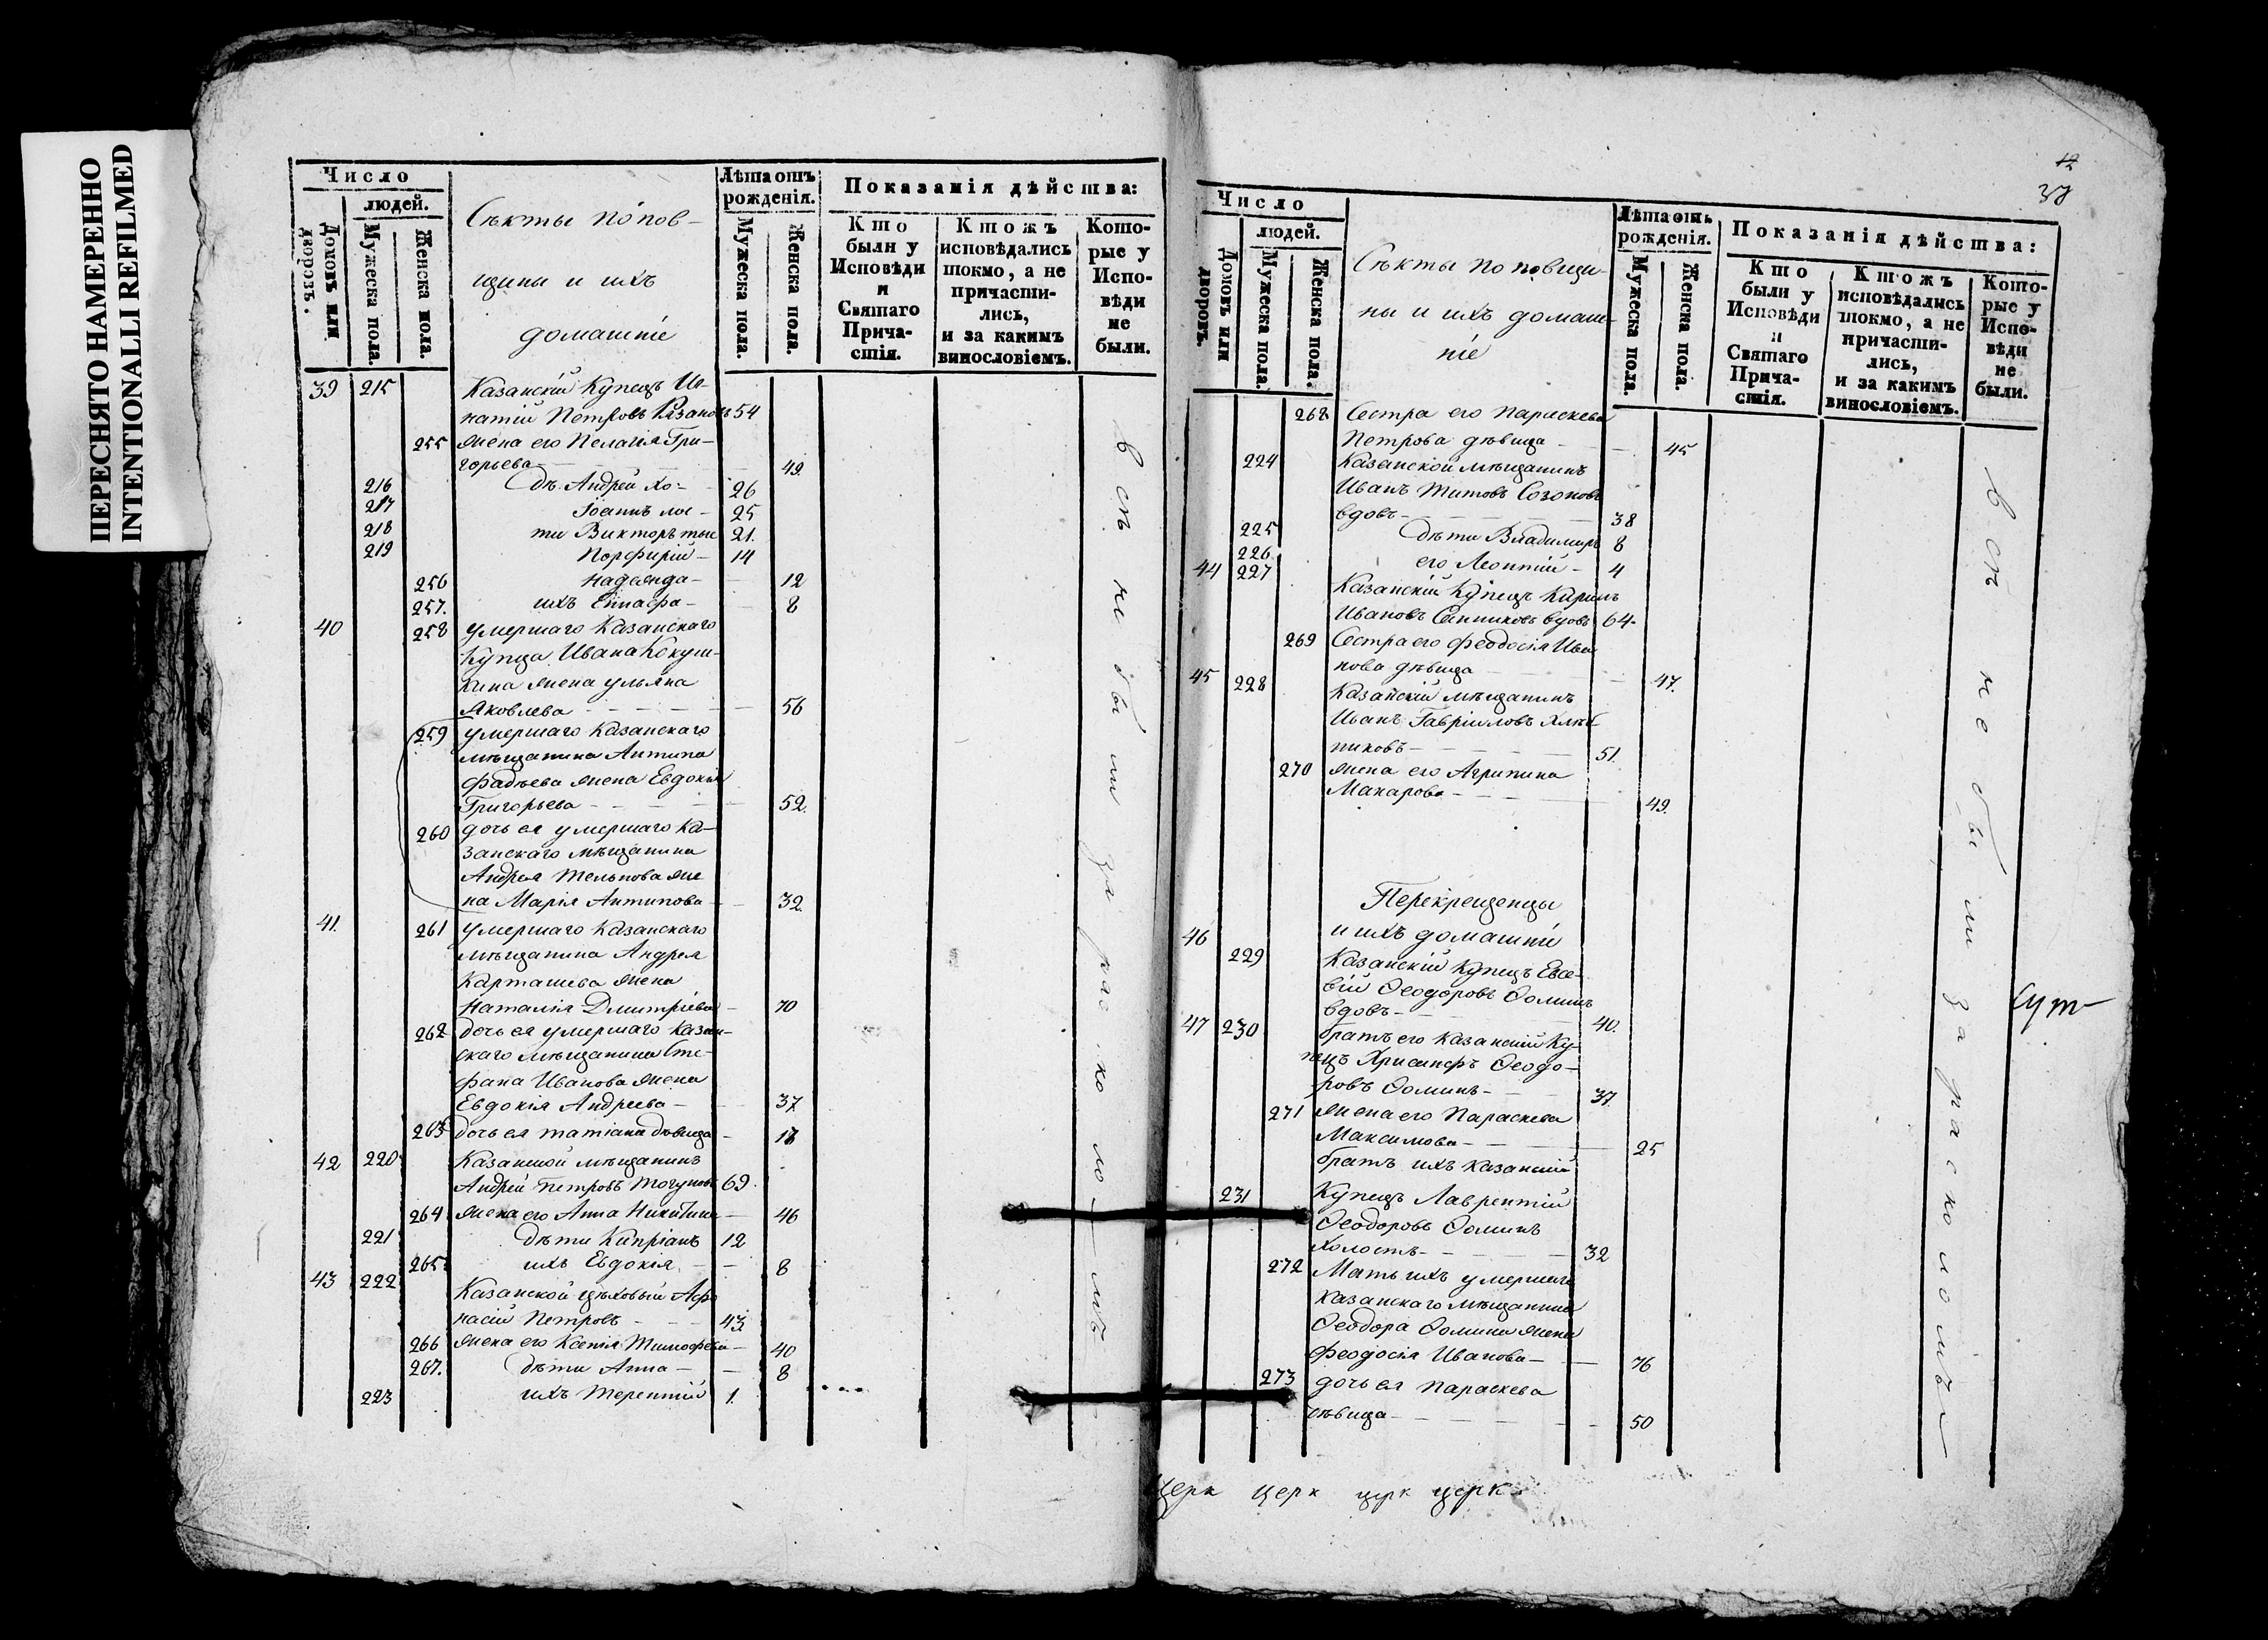 ПЕРЕСНЯТО НАМЕРЕННО
INTENTIONALLI REFILMED
Число
людей.
Домовъ или дворовъ.
Мужеска пола.
Женска пола.
Секты попов-
щины и ихъ
домашніе
Лѣта отъ рожденія.
Мужеска пола.
Женска пола.
Показанія дѣйства:
Кто были у Исповѣди и Святаго Прича-стія.
Ктожъ исповѣдались токмо, а не причасти-лись, и за какимъ винословіемъ.
Кото-рые у Испо-вѣди не были.
39 215 Казанскій Купецъ Иг-
натій Петровъ Рязановъ 54
255 жена его Пелагія Гри-
горьева 49
216 дѣ Андрей хо- 26
217 Іоаннъ лос- 25
218 ти Викторъ тые 21.
219 Порфирій 14
256 Надежда 12
257. ихъ Еннафа 8
40 258 умершаго Казанскаго
Купца Ивана Кокуш-
кина жена ульяна
Яковлева 56
259 умершаго Казанскаго
мѣщанина Антипа
Фадѣева жена Евдокія
Григорьева 52.
260 дочь ея умершаго Ка-
занскаго мѣщанина
Андрея Тельнова же
на Марія Антипова 32.
41. 261 умершаго Казанскаго
мѣщанина Андрея
Карташева жена
Наталія Дмитріева 70
262 дочь ея умершаго казан-
скаго мѣщанина Сте-
фана Иванова жена
Евдокія Андреева 37
263 дочь ея татіана дѣвица
42 220 Казанской мѣщанинъ
Андрей Петровъ 69
264 жена его Анна Никитина 46
221 дѣти Кипріанъ 12
265 ихъ Евдокія 8
43 222 Казанской цѣховый Афо
насій Петровъ 43
266 жена его Ксенія Тимофеева 40
267. дѣти Анна 8
223 ихъ Терентій 1.
всѣ не были за расколомъ
38
Число
людей.
Домовъ или дворовъ.
Мужеска пола.
Женска пола.
Секты поповщи-
ны и ихъ домаш-
ніе
Лѣта отъ рожденія.
Мужеска пола.
Женска пола.
Показанія дѣйства:
Кто были у Исповѣди и Святаго Прича-стія.
Ктожъ исповѣдались токмо, а не причасти-лись, и за какимъ винословіемъ.
Кото-рые у Испо-вѣди не были.
268 Сестра его параскева
Петрова дѣвица 45
224 Казанской мѣщанинъ
Иванъ Титовъ Созоновъ
вдовъ 38
225 дѣти Владимиръ 8
226 его Леонтій 4
44 227 Казанскій Купецъ
Ивановъ вдовъ 64
269 Сестра его феодосія Ива
нова дѣвица 47.
45 228 Казанскій мѣщанинъ
Иванъ Гавріиловъ Хлеб
никовъ 51.
270 жена его Агрипина
Макарова 49.
Перекрещенцы
и ихъ домашніе
46 229 Казанскій Купецъ Евсе-
вій Ѳеодоровъ Ѳоминъ
вдовъ 40.
47 230 братъ его Казанскій Ку-
пецъ Хрисанфъ Ѳеодо-
ровъ Ѳоминъ 37.
271 жена его Параскева
Максимова 25
братъ ихъ казанскій
231 Купецъ Лаврентій
Ѳеодоровъ Ѳоминъ
холостъ 32
272 Мать ихъ умершаго
казанскаго мѣщанина
Ѳеодора Ѳомина жена
феодосія Иванова 76
273 дочь ея параскева
дѣвица 50
всѣ не были за расколомъ
Церк церк црк церк